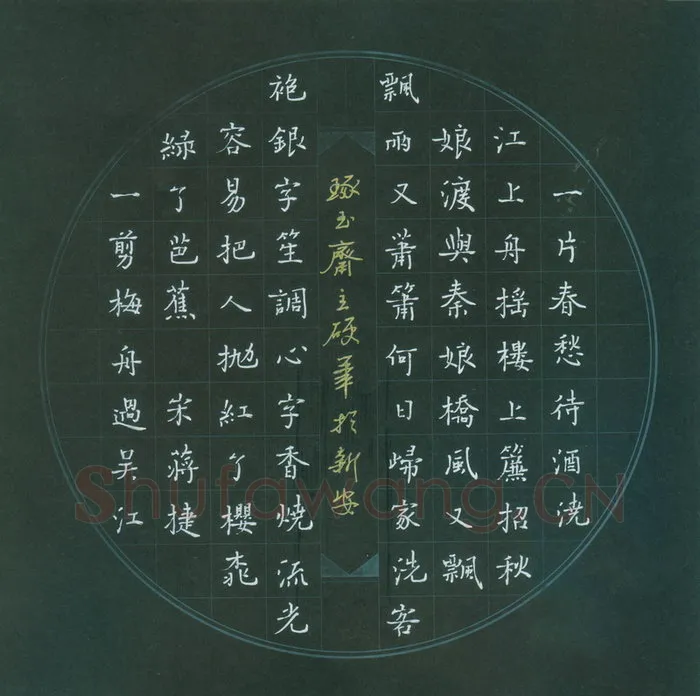 一片春愁待酒澆
江上舟摇樓上簾招秋
娘渡與秦娘橋風又飄
飄雨又蕭簫何日歸家洗客
琢玉齋主硬筆於新安
袍銀字笙調心字香燒流光
容易把人抛紅了櫻桃
緑了芭蕉 宋蔣捷
一剪梅舟過吴江
Shufawang.CN